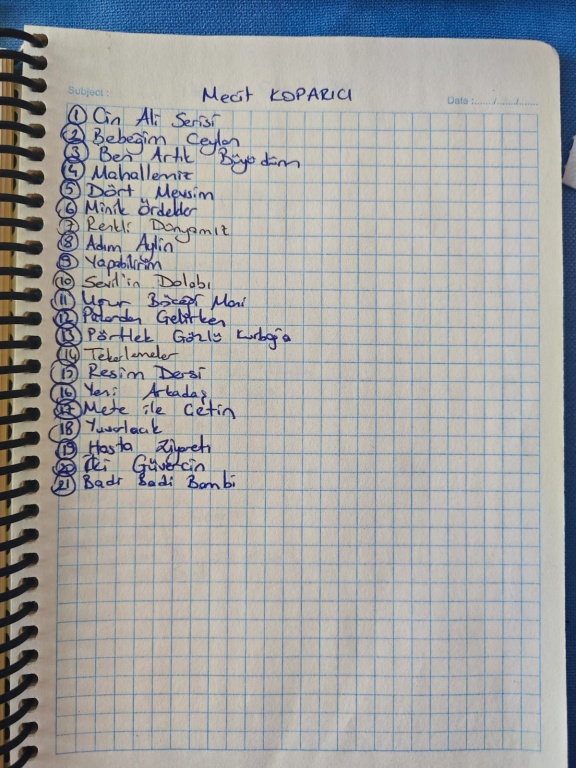 Subject :
Mecit KOPARICI
Date : ...../...../.....
1 Cin Ali Serisi
2 Bebeğim Ceylan
3 Ben Artık Büyüdüm
4 Mahallemiz
5 Dört Mevsim
6 Minik Ördekler
7 Renkli Dünyamız
8 Adım Aylin
9 Yapabilirim
10 Sevil'in Dolabı
11 Uğur Böceği Mavi
12 Pazardan Gelirken
13 Pörtlek Gözlü Kurbağa
14 Tekerlemeler
15 Resim Dersi
16 Yeni Arkadaş
17 Mete ile Çetin
18 Yuvarlacık
19 Hasta Ziyareti
20 İki Güvercin
21 Badi Badi Bambi